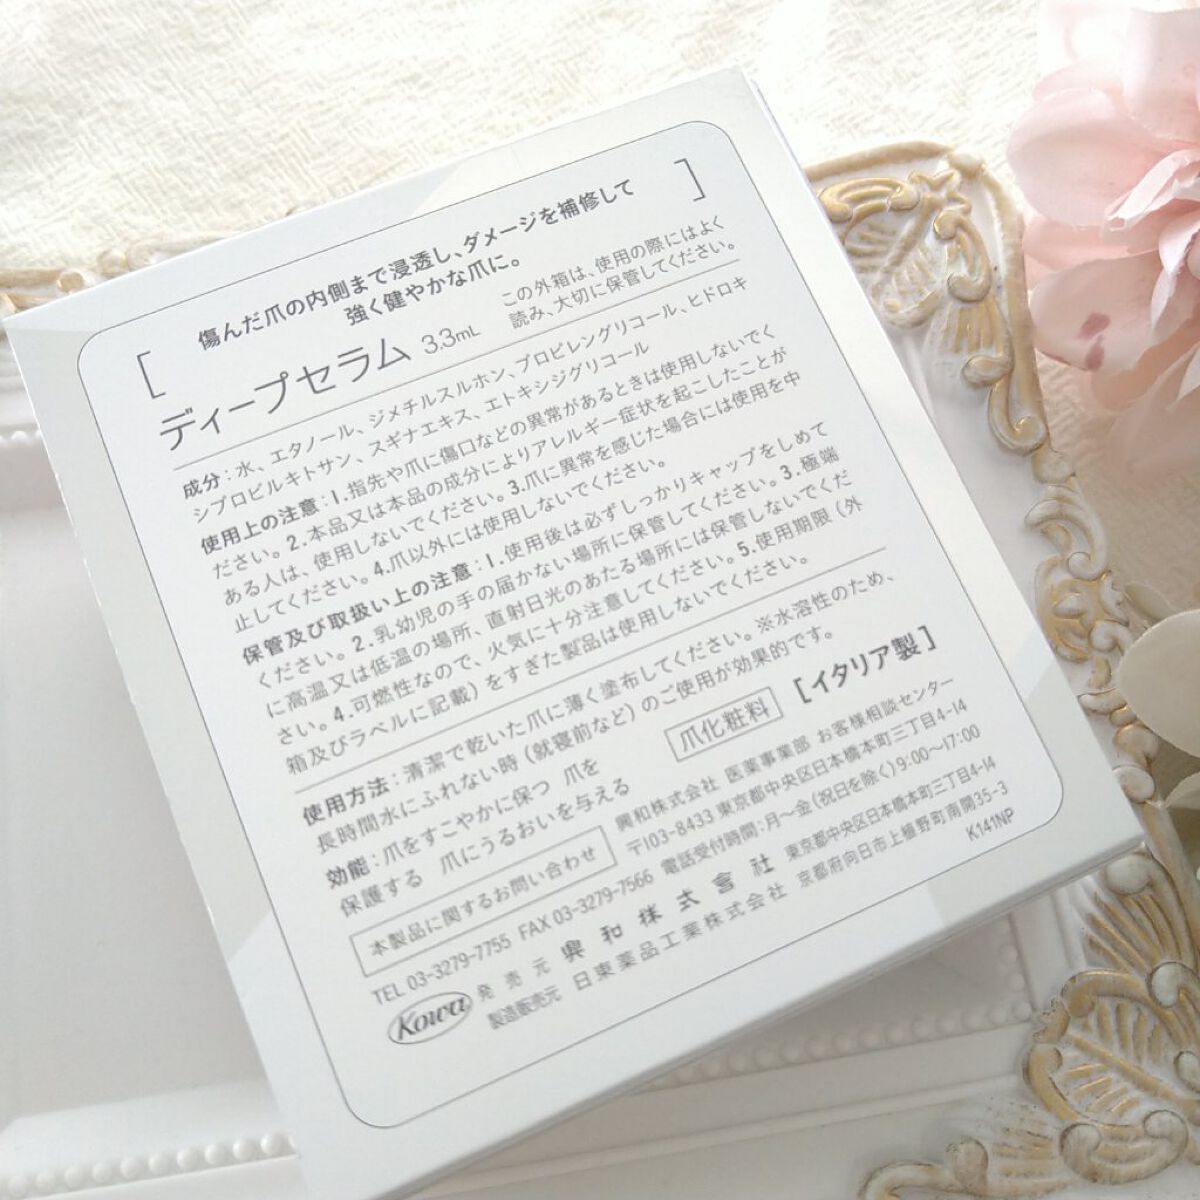 傷んだ爪の内側まで浸透し、ダメージを補修して
強く健やかな爪に。
ディープセラム 3.3mL
この外箱は、使用の際にはよく
読み、大切に保管してください。
成分：水、エタノール、ジメチルスルホン、プロピレングリコール、ヒドロキ
シプロピルキトサン、スギナエキス、エトキシジグリコール
使用上の注意：1.指先や爪に傷口などの異常があるときは使用しないでく
ださい。2.本品又は本品の成分によりアレルギー症状を起こしたことが
ある人は、使用しないでください。3.爪に異常を感じた場合には使用を中
止してください。4.爪以外には使用しないでください。
保管及び取扱い上の注意：1.使用後は必ずしっかりキャップをしめて
ください。2.乳幼児の手の届かない場所に保管してください。3.極端
に高温又は低温の場所、直射日光のあたる場所には保管しないでくだ
さい。4.可燃性なので、火気に十分注意してください。5.使用期限（外
箱及びラベルに記載）をすぎた製品は使用しないでください。
使用方法：清潔で乾いた爪に薄く塗布してください。※水溶性のため、
長時間水にふれない時（就寝前など）のご使用が効果的です。
効能：爪をすこやかに保つ 爪を
保護する 爪にうるおいを与える
爪化粧料
［イタリア製］
本製品に関するお問い合わせ
興和株式会社 医薬事業部 お客様相談センター
〒103-8433 東京都中央区日本橋本町三丁目4-14
TEL 03-3279-7755 FAX 03-3279-7566 電話受付時間：月〜金（祝日を除く）9:00〜17:00
Kowa
発売元 興和株式會社 東京都中央区日本橋本町三丁目4-14
製造販売元 日東薬品工業株式会社 京都府向日市上植野町南開35-3
K141NP